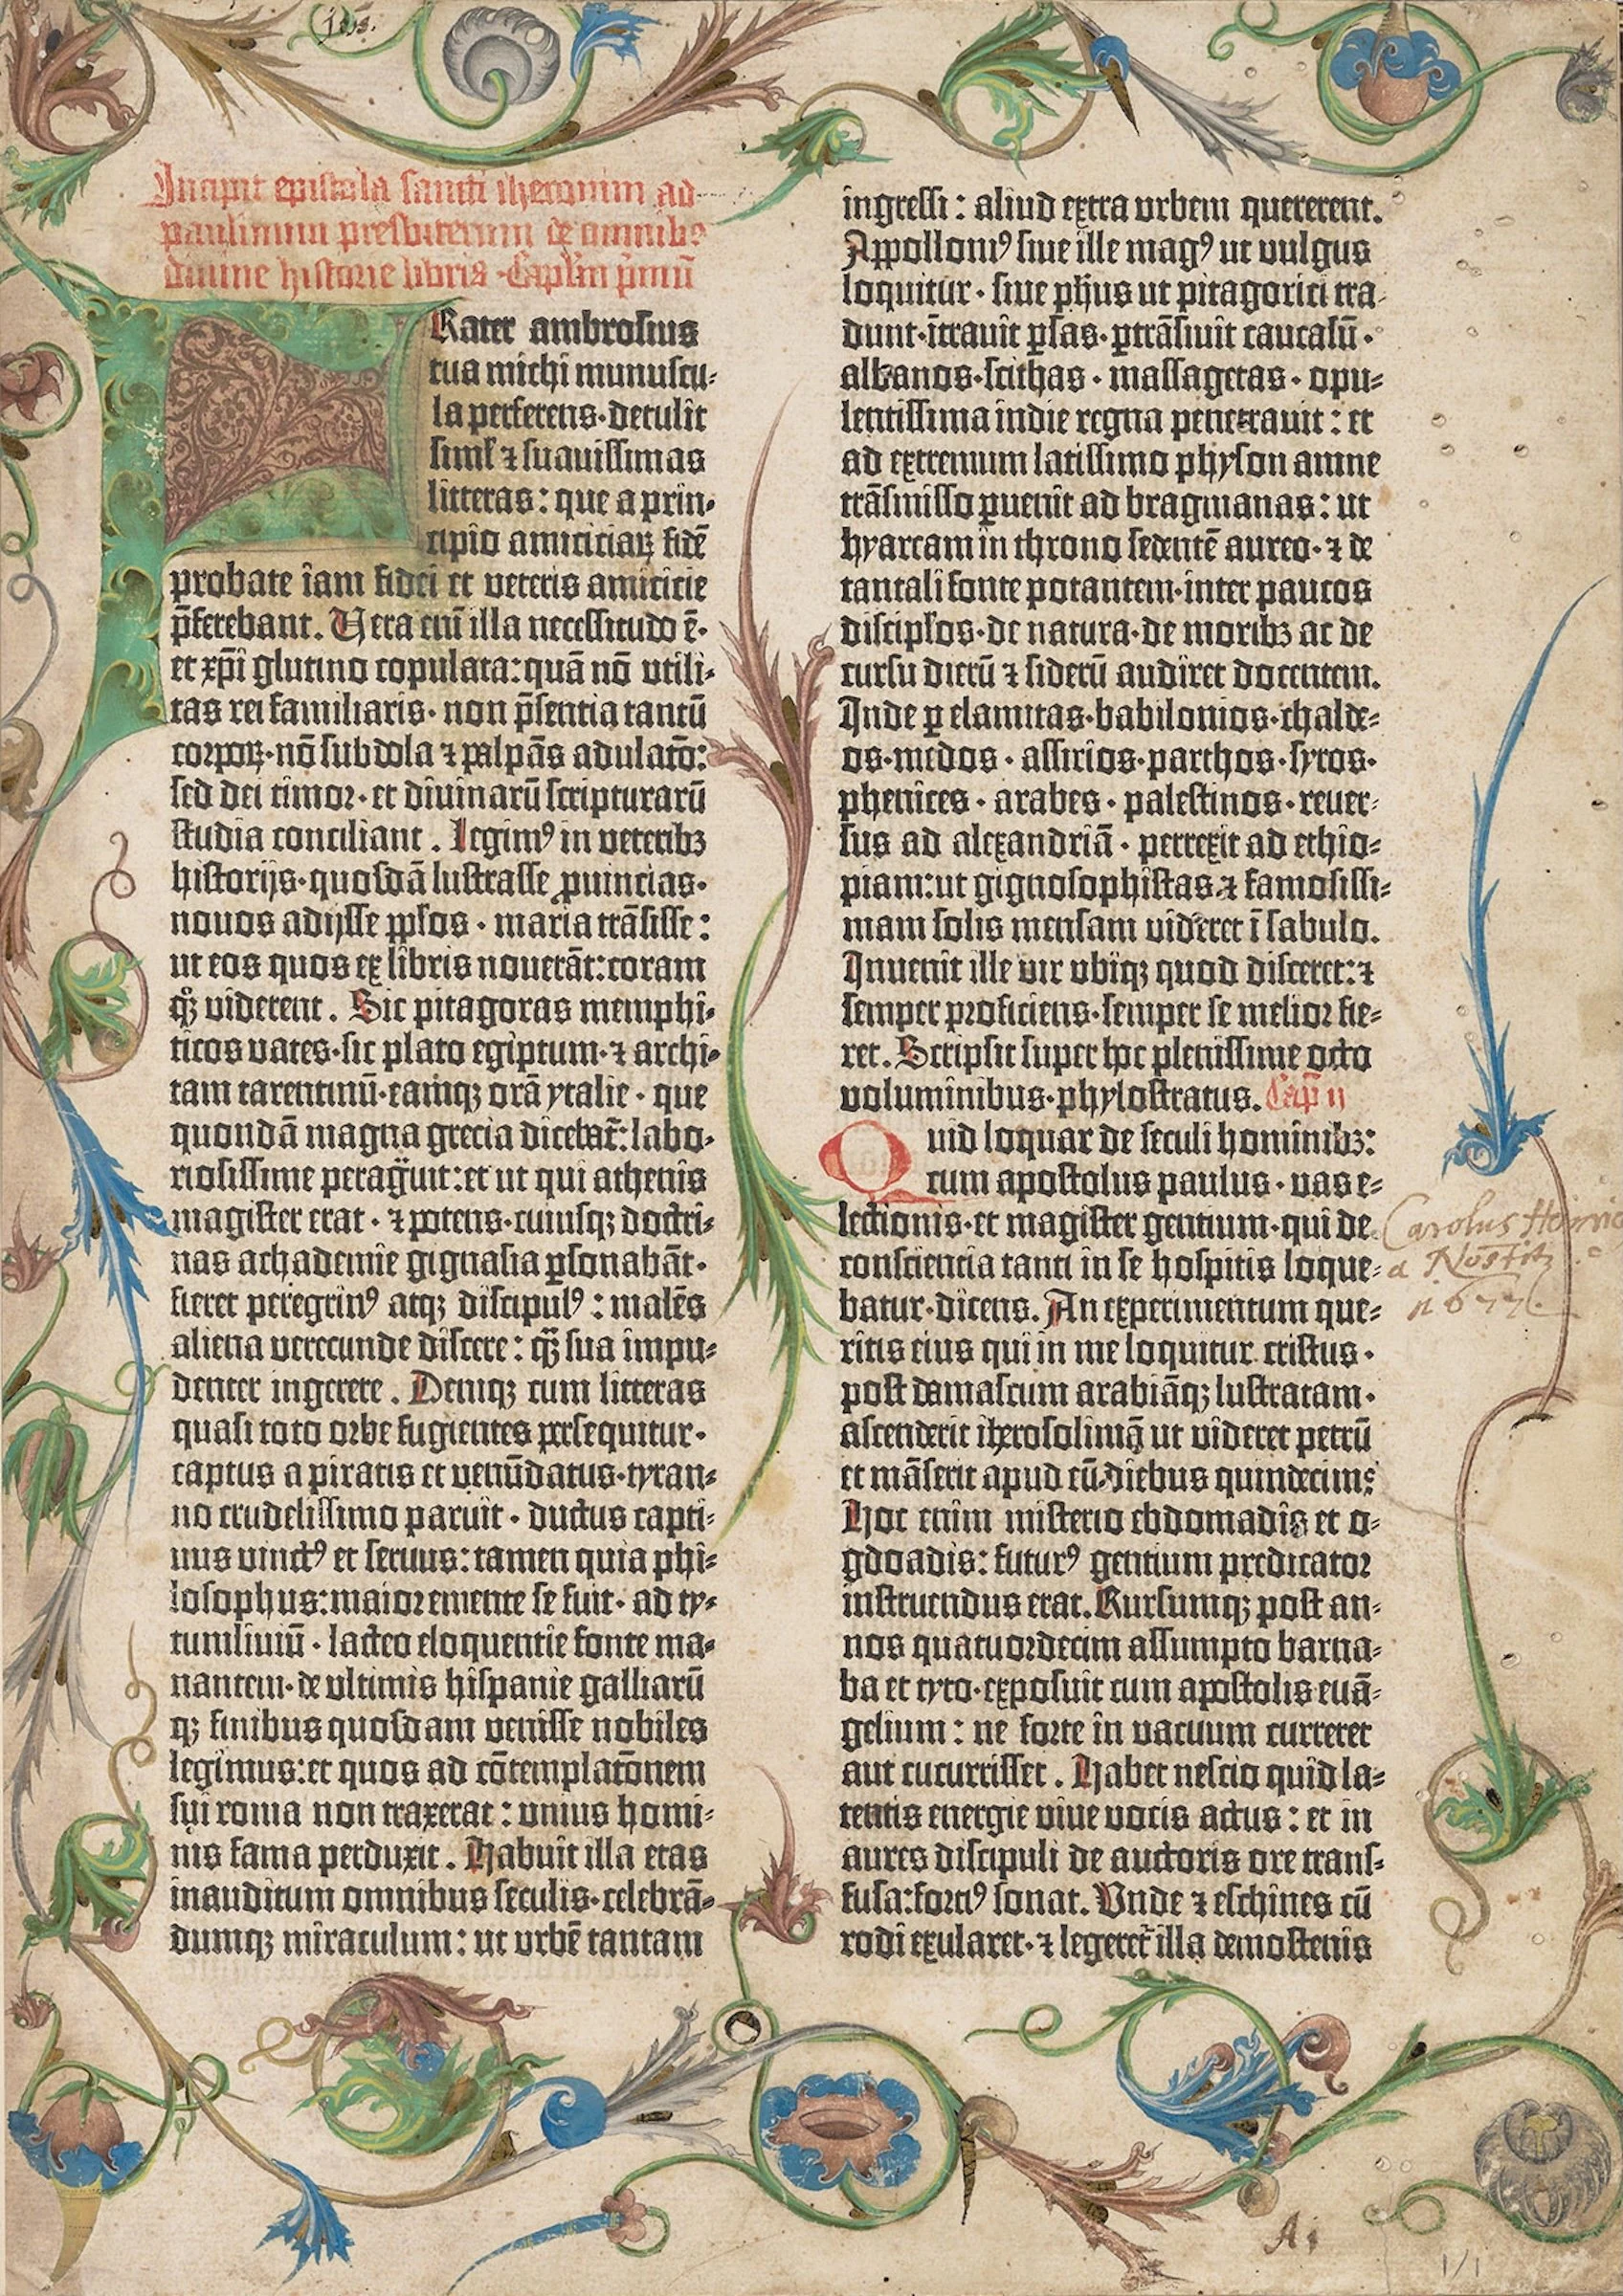 Incipit epistola sancti iheronimi ad
paulinum presbiterum de omnibus
divine historie libris · Capl'm p̄mū
Rater ambrosius
tua michi munuscu-
la perferens·detulit
siml' ⁊ suavissimas
litteras: que a prin-
cipio amiciciaꝝ fidē
probate iam fidei et veteris amicicie
p̄ferebant. Vera eni illa necessitudo ē·
et xp̄i glutino copulata: quā nō utili-
tas rei familiaris· non p̄sentia tantū
corpoꝝ·nō subdola ⁊ palpās adulatō:
sed dei timor·et divinarū scripturarū
studia conciliant. Legimꝰ in veteribꝫ
historijs·quosdā lustrasse ꝓuincias·
novos adijsse ppl'os · maria trāsisse:
ut eos quos ex libris noverāt: coram
qꝫ viderent. Sic pitagoras memphi-
ticos vates·sic plato egiptum·⁊ archi-
tam tarentinū·eamqꝫ orā ytalie · que
quondā magna grecia dicebat̄: labo-
riosissime peragͣuit: et ut qui athenis
magister erat · ⁊ potens·cuiusqꝫ doctri-
nas achademie gignasia ꝑsonabāt·
fieret peregrinꝰ atqꝫ discipulꝰ: malēs
aliena verecunde discere: qͣꝫ sua impu-
denter ingerere. Deniqꝫ cum litteras
quasi toto orbe fugientes persequitur·
captus a piratis et venūdatus·tyran-
no crudelissimo paruit · ductus capti-
uus vinctꝰ et seruus: tamen quia phi-
losophus: maior emente se fuit· ad ty-
tumliuiū · lacteo eloquentie fonte ma-
nantem·de ultimis hispanie galliarū
qꝫ finibus quosdam venisse nobiles
legimus: et quos ad cōtemplatōnem
sui roma non traxerat: unius homi-
nis fama perduxit. Habuit illa etas
inauditum omnibus seculis·celebrā-
dumqꝫ miraculum: ut urbē tantam
ingressi: aliud extra urbem quererent.
Appolloniꝰ siue ille magꝰ ut vulgus
loquitur· siue ph̄us ut pitagorici tra-
dunt·ītravit ꝑsas·ꝑtrāsiuit caucasū·
albanos·scithas·massagetas·opu-
lentissima indie regna penetrauit: et
ad extremum latissimo physon amne
trāsmisso ꝑuenit ad bragmanas: ut
hyarcam in throno sedentē aureo·⁊ de
tantali fonte potantem·inter paucos
discipl'os·de natura·de moribꝫ ac de
cursu dierū ⁊ siderū audiret docentem.
Inde ꝑ elamitas·babilonios·chalde-
os·medos·assirios·parthos·syros·
phenices·arabes·palestinos·reuer-
sus ad alexandriā·perrexit ad ethio-
piam: ut gignosophistas ⁊ famosissi-
mam solis mensam videret ī sabulo.
Invenit ille vir ubiqꝫ quod disceret: ⁊
semper proficiens·semper se melior fie-
ret. Scripsit super hoc plenissime octo
voluminibus·phylostratus. Cap̄ ij
Quid loquar de seculi hominibꝫ:
cum apostolus paulus·vas e-
lectionis·et magister gentium·qui de
conscientia tanti in se hospitis loque-
batur·dicens. An experimentum que-
ritis eius qui in me loquitur cristus·
post damascum arabiāqꝫ lustratam·
ascenderit iherosolimā ut videret petrū
et māserit apud eū diebus quindecim:
Hoc enim misterio ebdomadis et o-
gdoadis: futurꝰ gentium predicator
instruendus erat. Rursumqꝫ post an-
nos quatuordecim assumpto barna-
ba et tyto·exposuit cum apostolis euā-
gelium: ne forte in vacuum curreret
aut cucurrisset. Habet nescio quid la-
tentis energie vive vocis actus: et in
aures discipuli de auctoris ore trans-
fusa: forciꝰ sonat. Unde ⁊ eschines cū
rodi exularet·⁊ legeret̄ illa demostenis
Carolus
a Nostitz
A i
1/1